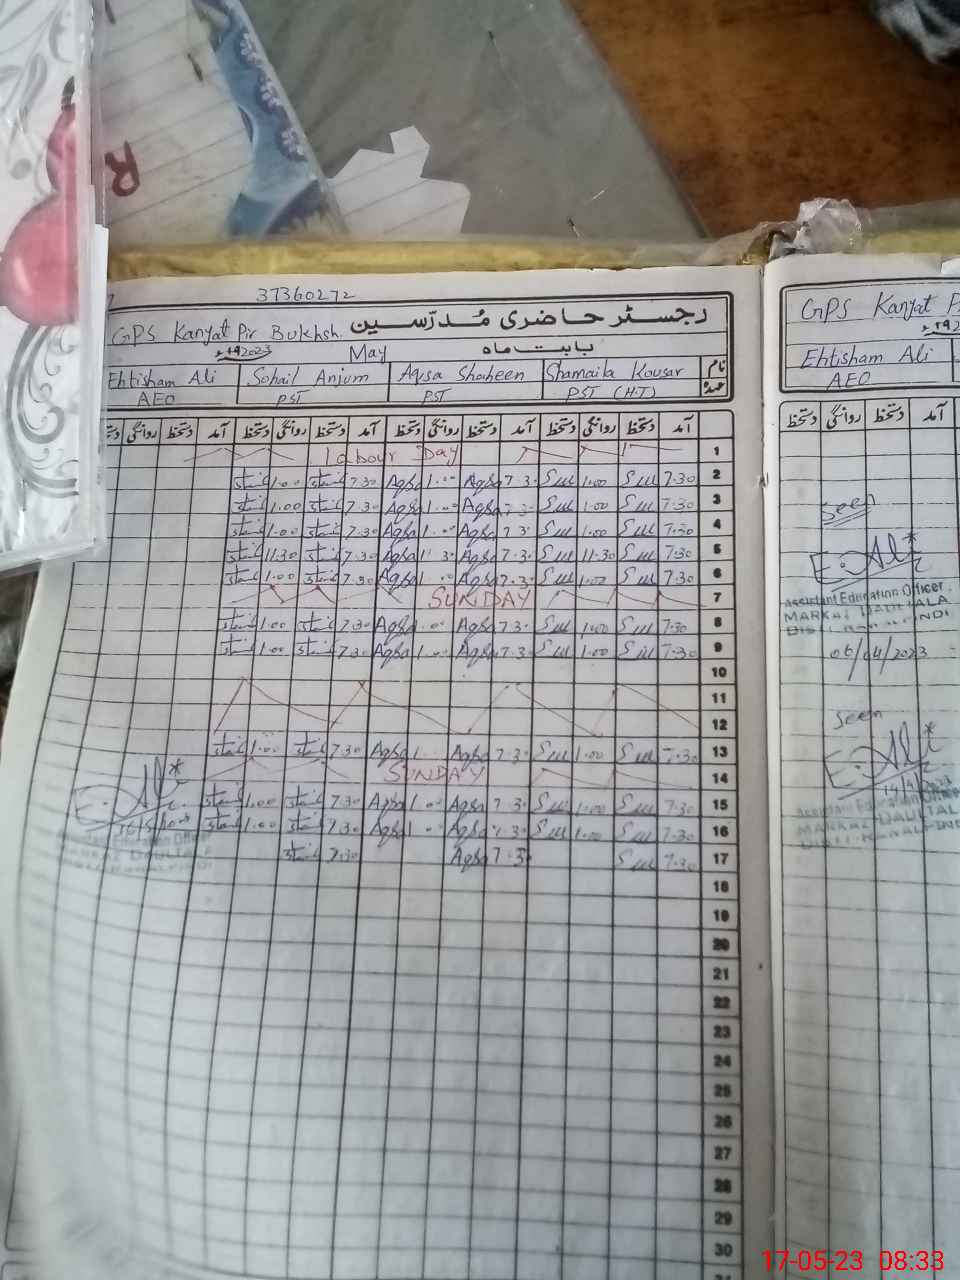 37360272
GPS Kanyat Pir Bukhsh. رجسٹر حاضری مُدرّسین
2023 May بابت ماہ
Ehtisham Ali Sohail Anjum Aqsa Shaheen Shamaila Kousar نام
AEO PST PST PST (H.T) عہدہ
روانگی دستخط آمد دستخط روانگی دستخط آمد دستخط روانگی دستخط آمد دستخط روانگی دستخط آمد
Labour Day 1
1.00 7.30 Aqsa 1.00 Aqsa 7.30 1.00 7.30 2
1.00 7.30 Aqsa 1.00 Aqsa 7.30 1.00 7.30 3
1.00 7.30 Aqsa 1.00 Aqsa 7.30 1.00 7.30 4
11.30 7.30 Aqsa 11.30 Aqsa 7.30 11.30 7.30 5
1.00 7.30 Aqsa 1.00 Aqsa 7.30 1.00 7.30 6
SUNDAY 7
1.00 7.30 Aqsa 1.00 Aqsa 7.30 1.00 7.30 8
1.00 7.30 Aqsa 1.00 Aqsa 7.30 1.00 7.30 9
10
11
12
1.00 7.30 Aqsa 1.00 Aqsa 7.30 1.00 7.30 13
SUNDAY 14
1.00 7.30 Aqsa 1.00 Aqsa 7.30 1.00 7.30 15
1.00 7.30 Aqsa 1.00 Aqsa 7.30 1.00 7.30 16
7.30 Aqsa 7.30 7.30 17
18
19
20
21
22
23
24
25
26
27
28
29
30
E. Ali
Assistant Education Officer
MARKAZ DAULTALA
GPS Kanyat
Ehtisham Ali
AEO
دستخط روانگی دستخط آمد
Seen
E. Ali
Assistant Education Officer
MARKAZ DAULTALA
DISTT. RAWALPINDI
06/04/2023
Seen
E. Ali
Assistant Education Officer
MARKAZ DAULTAL
R
17-05-23 08:33